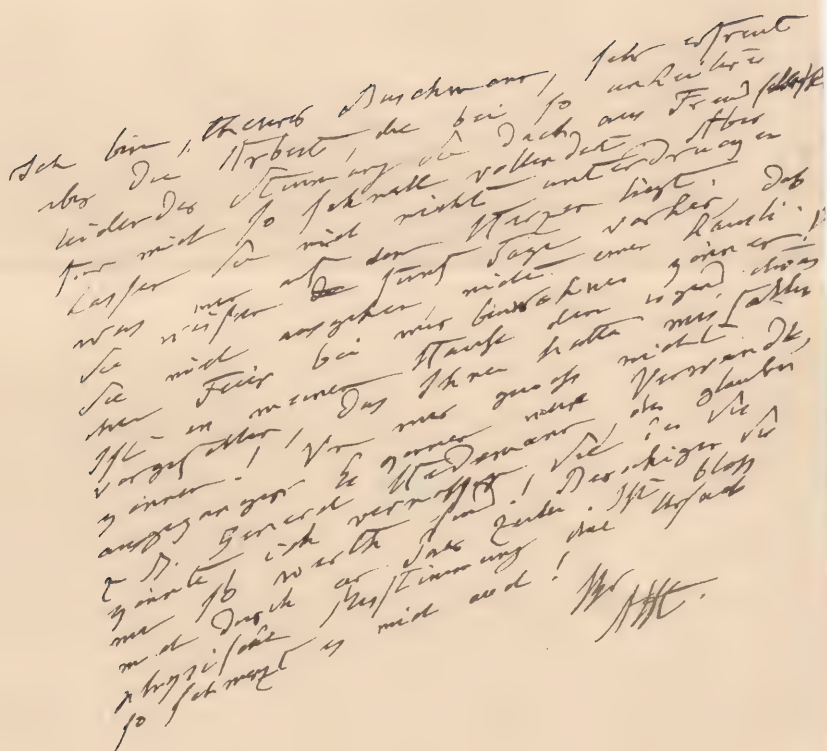 Ich bin, theurer Buschmann, sehr erfreut
über die Arbeit, die bei so unheiterer
leidender Stimmung Sie doch aus Freundschaft
für mich so schnell vollendet. Aber
lassen Sie mich nicht unterdrücken
was mir auf dem Herzen liegt.
Sie weissen fünf Tage vorher, dass
Sie mich ausgehen, nicht einer häusli-
chen Feier bei mir beiwohnen können!
Ist in meinem Hause denn irgend etwas
vorgefallen, das Ihnen hätte missfallen
können! Von mir gewiss nicht
ausgegangen. Es können neue Verwandte,
z. B. Hedemann, das glauben,
könnte ich vermuthen, Sie, die Sie
mir so werth sind! Beruhigen Sie
mich durch ein Paar Zeilen. Ist bloss
physische Verstimmung die Ursach
so schmerzt es mich auch!
Ihr
AHt.